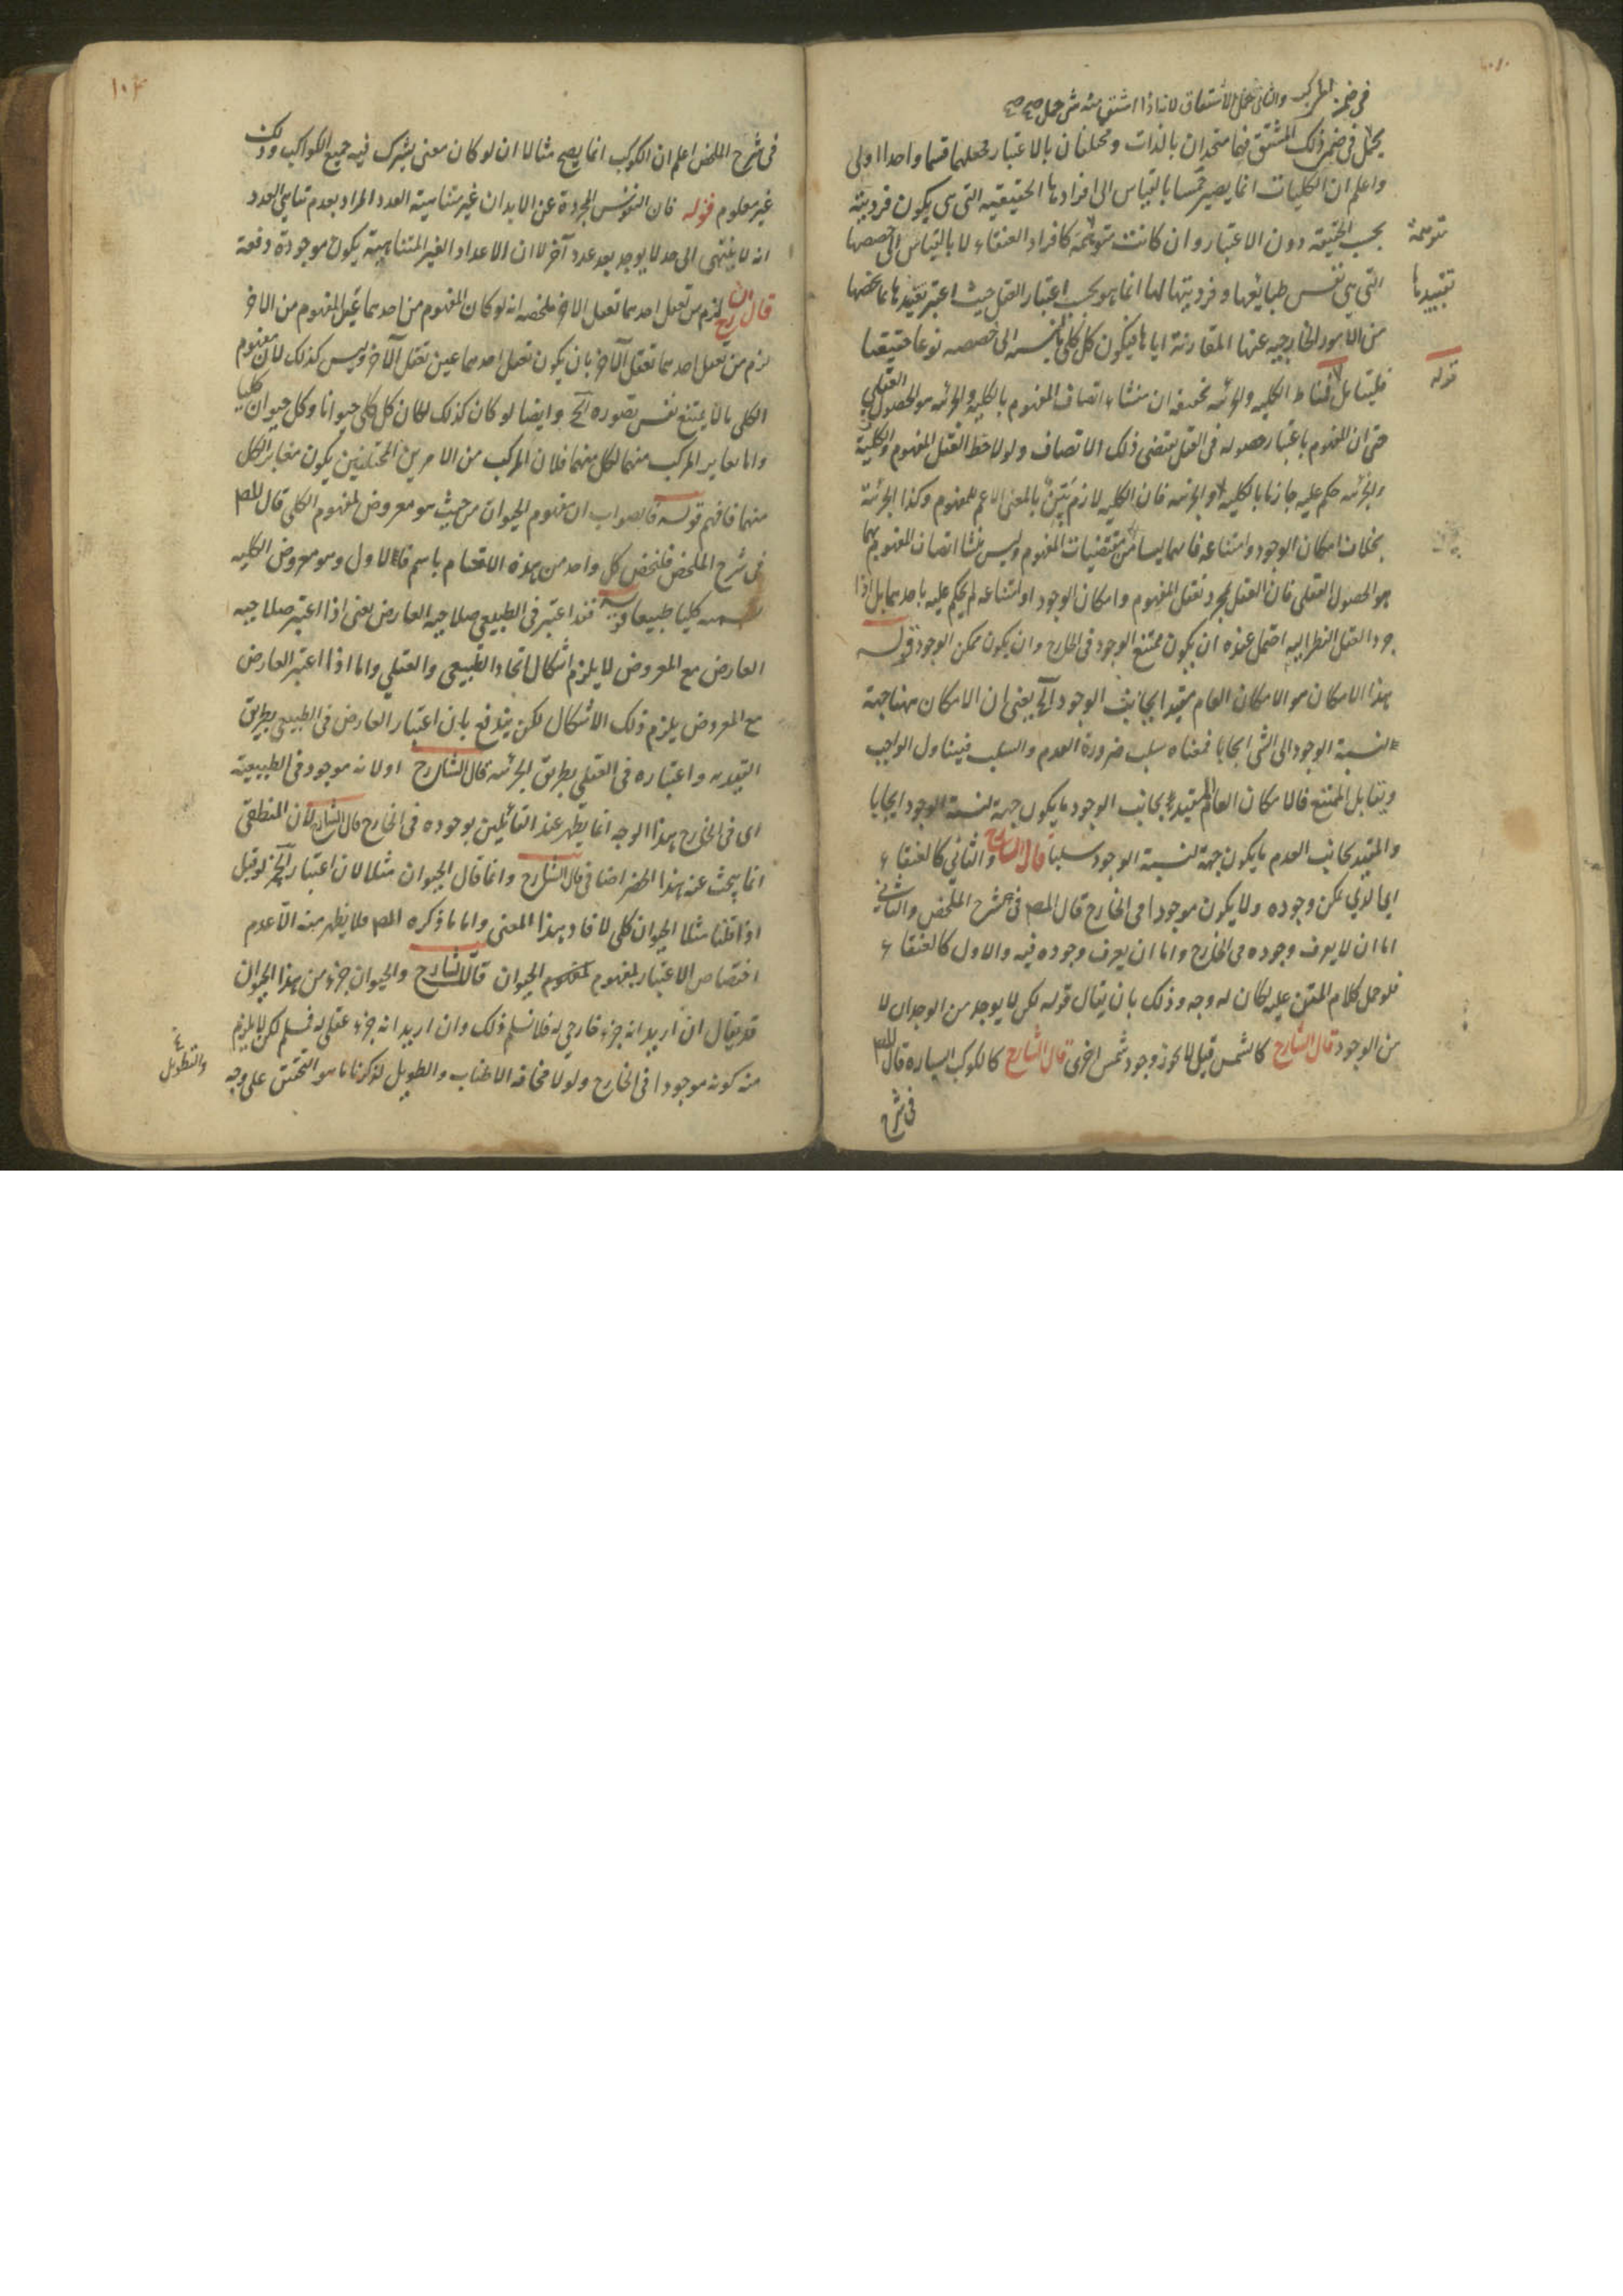 في ضمن المركب والثاني حمل الاشتقاق لانه اذا اشتق منه شئ حمل
يحمل في ضمن ذلك المشتق فهما متحدان بالذات ومختلفان بالاعتبار فجعلهما قسما واحدا اولى
واعلم ان الكليات انما يصير خمسا بالقياس الى افرادها الحقيقيه التي هي يكون فرديته
بحسب الحقيقة دون الاعتبار وان كانت متوهمة كافراد العنقاء لا بالقياس الى حصصها
التي هي نفس طبايعها وفرديتها لها انما هو بحسب اعتبار العقل حيث اعتبر تقييدها بما يخصها
من الامور الخارجيه عنها المقارنة اياها فيكون كل كلي بالنسبه الى حصصه نوعا حقيقيا
متوهمة
تقييدها
قوله
فليتأمل مناط الكليه والجزئيه تحقيقه ان منشاء اتصاف المفهوم بالكليه والجزئيه هو الحصول العقلي
حتى ان المفهوم باعتبار حصوله في العقل يقتضي ذلك الاتصاف ولو لاحظ العقل المفهوم والكلية
والجزئيه حكم عليه جازما بالكليه او الجزئيه فان الكليه لازم بيّن بالمعنى الاعم للمفهوم وكذا الجزئية
بخلاف امكان الوجود وامتناعه فانهما ليسا من مقتضيات المفهوم وليس منشأ اتصاف المفهوم بهما
هو الحصول العقلي فان العقل بمجرد تعقل المفهوم وامكان الوجود او امتناعه لم يحكم عليه باحدهما بل اذا
جرد العقل النظر اليه احتمل عنده ان يكون ممتنع الوجود في الخارج وان يكون ممكن الوجود قوله
هذا الامكان هو الامكان العام مقيد الجانب الوجود آلخ يعني ان الامكان ههنا جهة
لنسبة الوجود الى الشئ ايجابا فمعناه سلب ضرورة العدم والسلب فيتناول الواجب
ويقابل الممتنع فالامكان العام المقيد بجانب الوجود ما يكون جهة لنسبة الوجود ايجابا
والمقيد بجانب العدم ما يكون جهة لنسبة الوجود سلبا قال الشارح والثاني كالعنقاء
اي الذي يمكن وجوده ولا يكون موجودا في الخارج قال المص في شرح الملخص والثاني
اما ان لا يعرف وجوده في الخارج واما ان يعرف وجوده فيه والاول كالعنقاء
فلو حمل كلام المتن عليه لكان له وجه وذلك بان يقال قوله لكن لا يوجد من الوجدان لا
من الوجود قال الشارح كالشمس قيل لا يجوز وجود شمس اخرى قال الشارح كالكوكب السياره قال المص
في شرح
١٠٤
في شرح الملخص اعلم ان الكوكب انما يصح مثالا ان لو كان معنى يشترك فيه جميع الكواكب وذلك
غير معلوم قوله فان النفوس المجردة عن الابدان غير متناهية العدد المراد بعدم تناهي العدد
انه لا ينتهي الى حد لا يوجد بعد عدد آخر لا ان الاعداد الغير المتناهية يكون موجودة دفعة
قال الشارح لزم من تعقل احدهما تعقل الاخر ملخصه انه لو كان المفهوم من احدهما عين المفهوم من الاخر
لزم من تعقل احدهما تعقل الآخر بان يكون تعقل احدهما عين تعقل الآخر وليس كذلك لان مفهوم
الكلي ما لا يمتنع نفس تصوره آلخ وايضا لو كان كذلك لكان كل كلي حيوانا وكل حيوان كليا
واما تغاير المركب منهما لكل منهما فلان المركب من الامرين المختلفين يكون مغاير الكل
منهما فافهم قوله فالصواب ان مفهوم الحيوان من حيث هو معروض لمفهوم الكلي قال المص
في شرح الملخص فلنخص كل واحد من هذه الاقسام باسم فالاول وهو معروض الكليه
نسميه كليا طبيعيا قوله فقد اعتبر في الطبيعي صلاحية العارض يعني اذا اعتبر صلاحية
العارض مع المعروض لا يلزم اشكال اتحاد الطبيعي والعقلي واما اذا اعتبر العارض
مع المعروض يلزم ذلك الاشكال لكن يندفع بان اعتبار العارض في الطبيعي بطريق
التقييد واعتباره في العقلي بطريق الجزئيه قال الشارح اولا نه موجود في الطبيعة
اي في الخارج هذا الوجه انما يظهر عند القائلين بوجوده في الخارج قال الشارح لان المنطقي
انما يبحث عنه هذا الحصر اضافي قال الشارح وانما قال الحيوان مثلا لان اعتبار آلخ لو قيل
اذا قلنا مثلا الحيوان كلي لافاد هذا المعنى واما ما ذكره المص فلا يظهر منه الا عدم
اختصاص الاعتبار لمفهوم الحيوان قال الشارح والحيوان جزء من هذا الحيوان
قد يقال ان اريد انه جزء خارجي له فلا نسلم ذلك وان اريد انه جزء عقلي له فمسلم لكن لا يلزم
منه كونه موجودا في الخارج ولولا مخافة الاطناب والطويل لذكرنا ما هو التحقيق على وجه
والتطويل